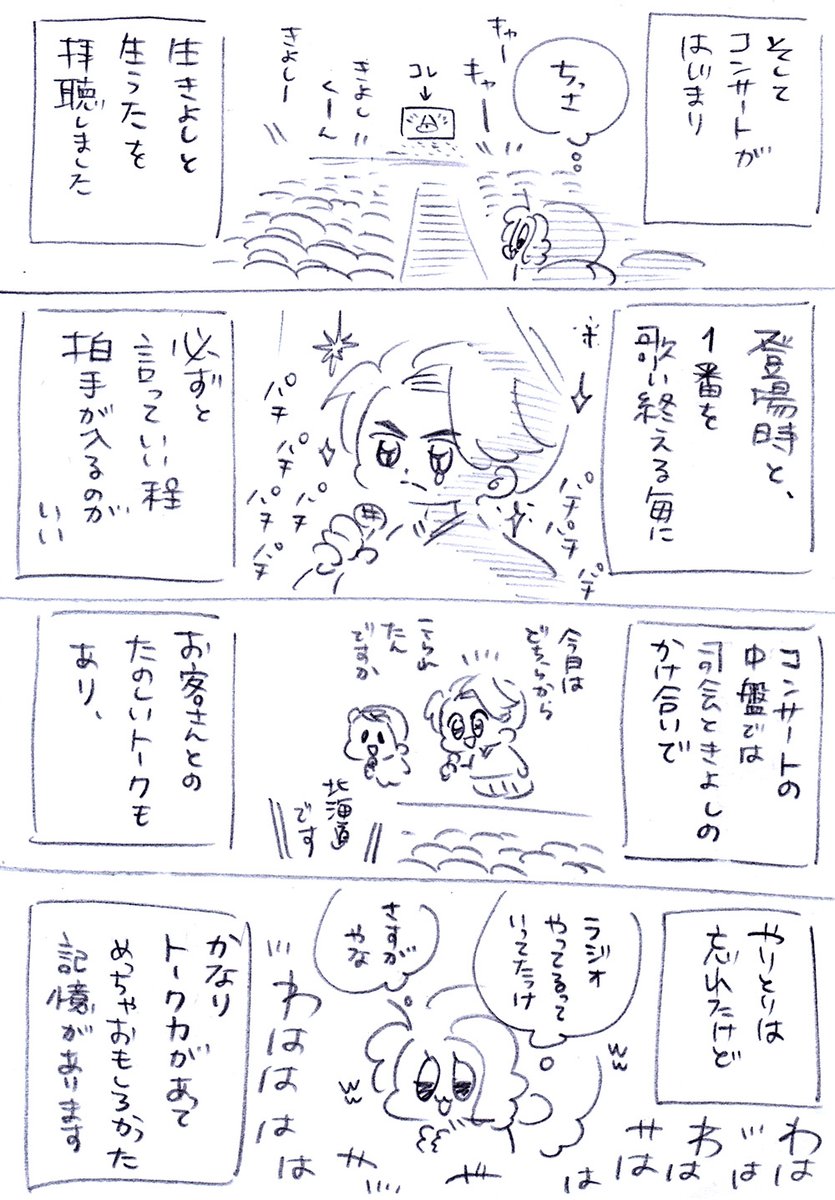 そして
コンサートが
はじまり
ちっさ
キャー
キャー
コレ
きよしぃ
くーん
きよしー
生きよしと
生うたを
拝聴しました
登場時と、
1番を
歌い終える毎に
パチ
パチ
パチ
パチ
パチ
パチ
パチ
パチ
必ずと
言っていい程
拍手が入るのが
いい
コンサートの
中盤では
司会ときよしの
かけ合いで
今日は
どちらから
こられ
たん
ですか
北海道
です
お客さんとの
たのしいトークも
あり、
やりとりは
忘れたけど
ラジオ
やってるって
いってたっけ
さすが
やな
わは
はは
わは
はは
は
わはははは
かなり
トーク力があって
めっちゃおもしろかった
記憶があります